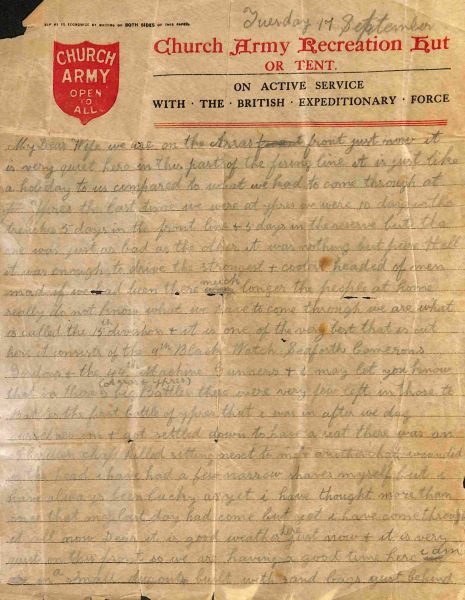 HELP US TO ECONOMIZE BY WRITING ON BOTH SIDES OF THIS PAPER.
Tuesday 17 September
CHURCH
ARMY
OPEN
TO
ALL
Church Army Recreation Hut
OR TENT.
ON ACTIVE SERVICE
WITH · THE · BRITISH · EXPEDITIONARY · FORCE
My Dear Wife we are on the Arras front just now it
is very quiet here in this part of the firing line it is just like
a holeday to us compared to what we had to come through at
Ypres the last time we were at ypres we were 10 days in the
trenches 5 days in the front line + 5 days in the reserve but the
one was just as bad as the other it was nothing but pure Hell
it was enough to drive the strongest + coolest headed of men
mad if we had been there much longer the people at home
really do not know what we have to come through we are what
is called the 15th division + it is one of the very best that is out
here it consists of the 4th Black Watch Seaforth Camerons
Gordons + the 44th Machine Gunners + i may let you know
(Arras + Ypres)
that in these big Battles there were very few left in those to
the first battle of ypres that i was in after we dug
ourselves in + got settled down to have a rest there was an
chap killed sitting next to me + another had wounded
head i have had a few narrow shaves myself but i
have always been lucky as yet i have thought more than
once that my last day had come but yet i have come through
it all now Dear it is good weather here just now + it is very
quiet on this front so we are having a good time here i am
in a small dugout built with sand bags just behind